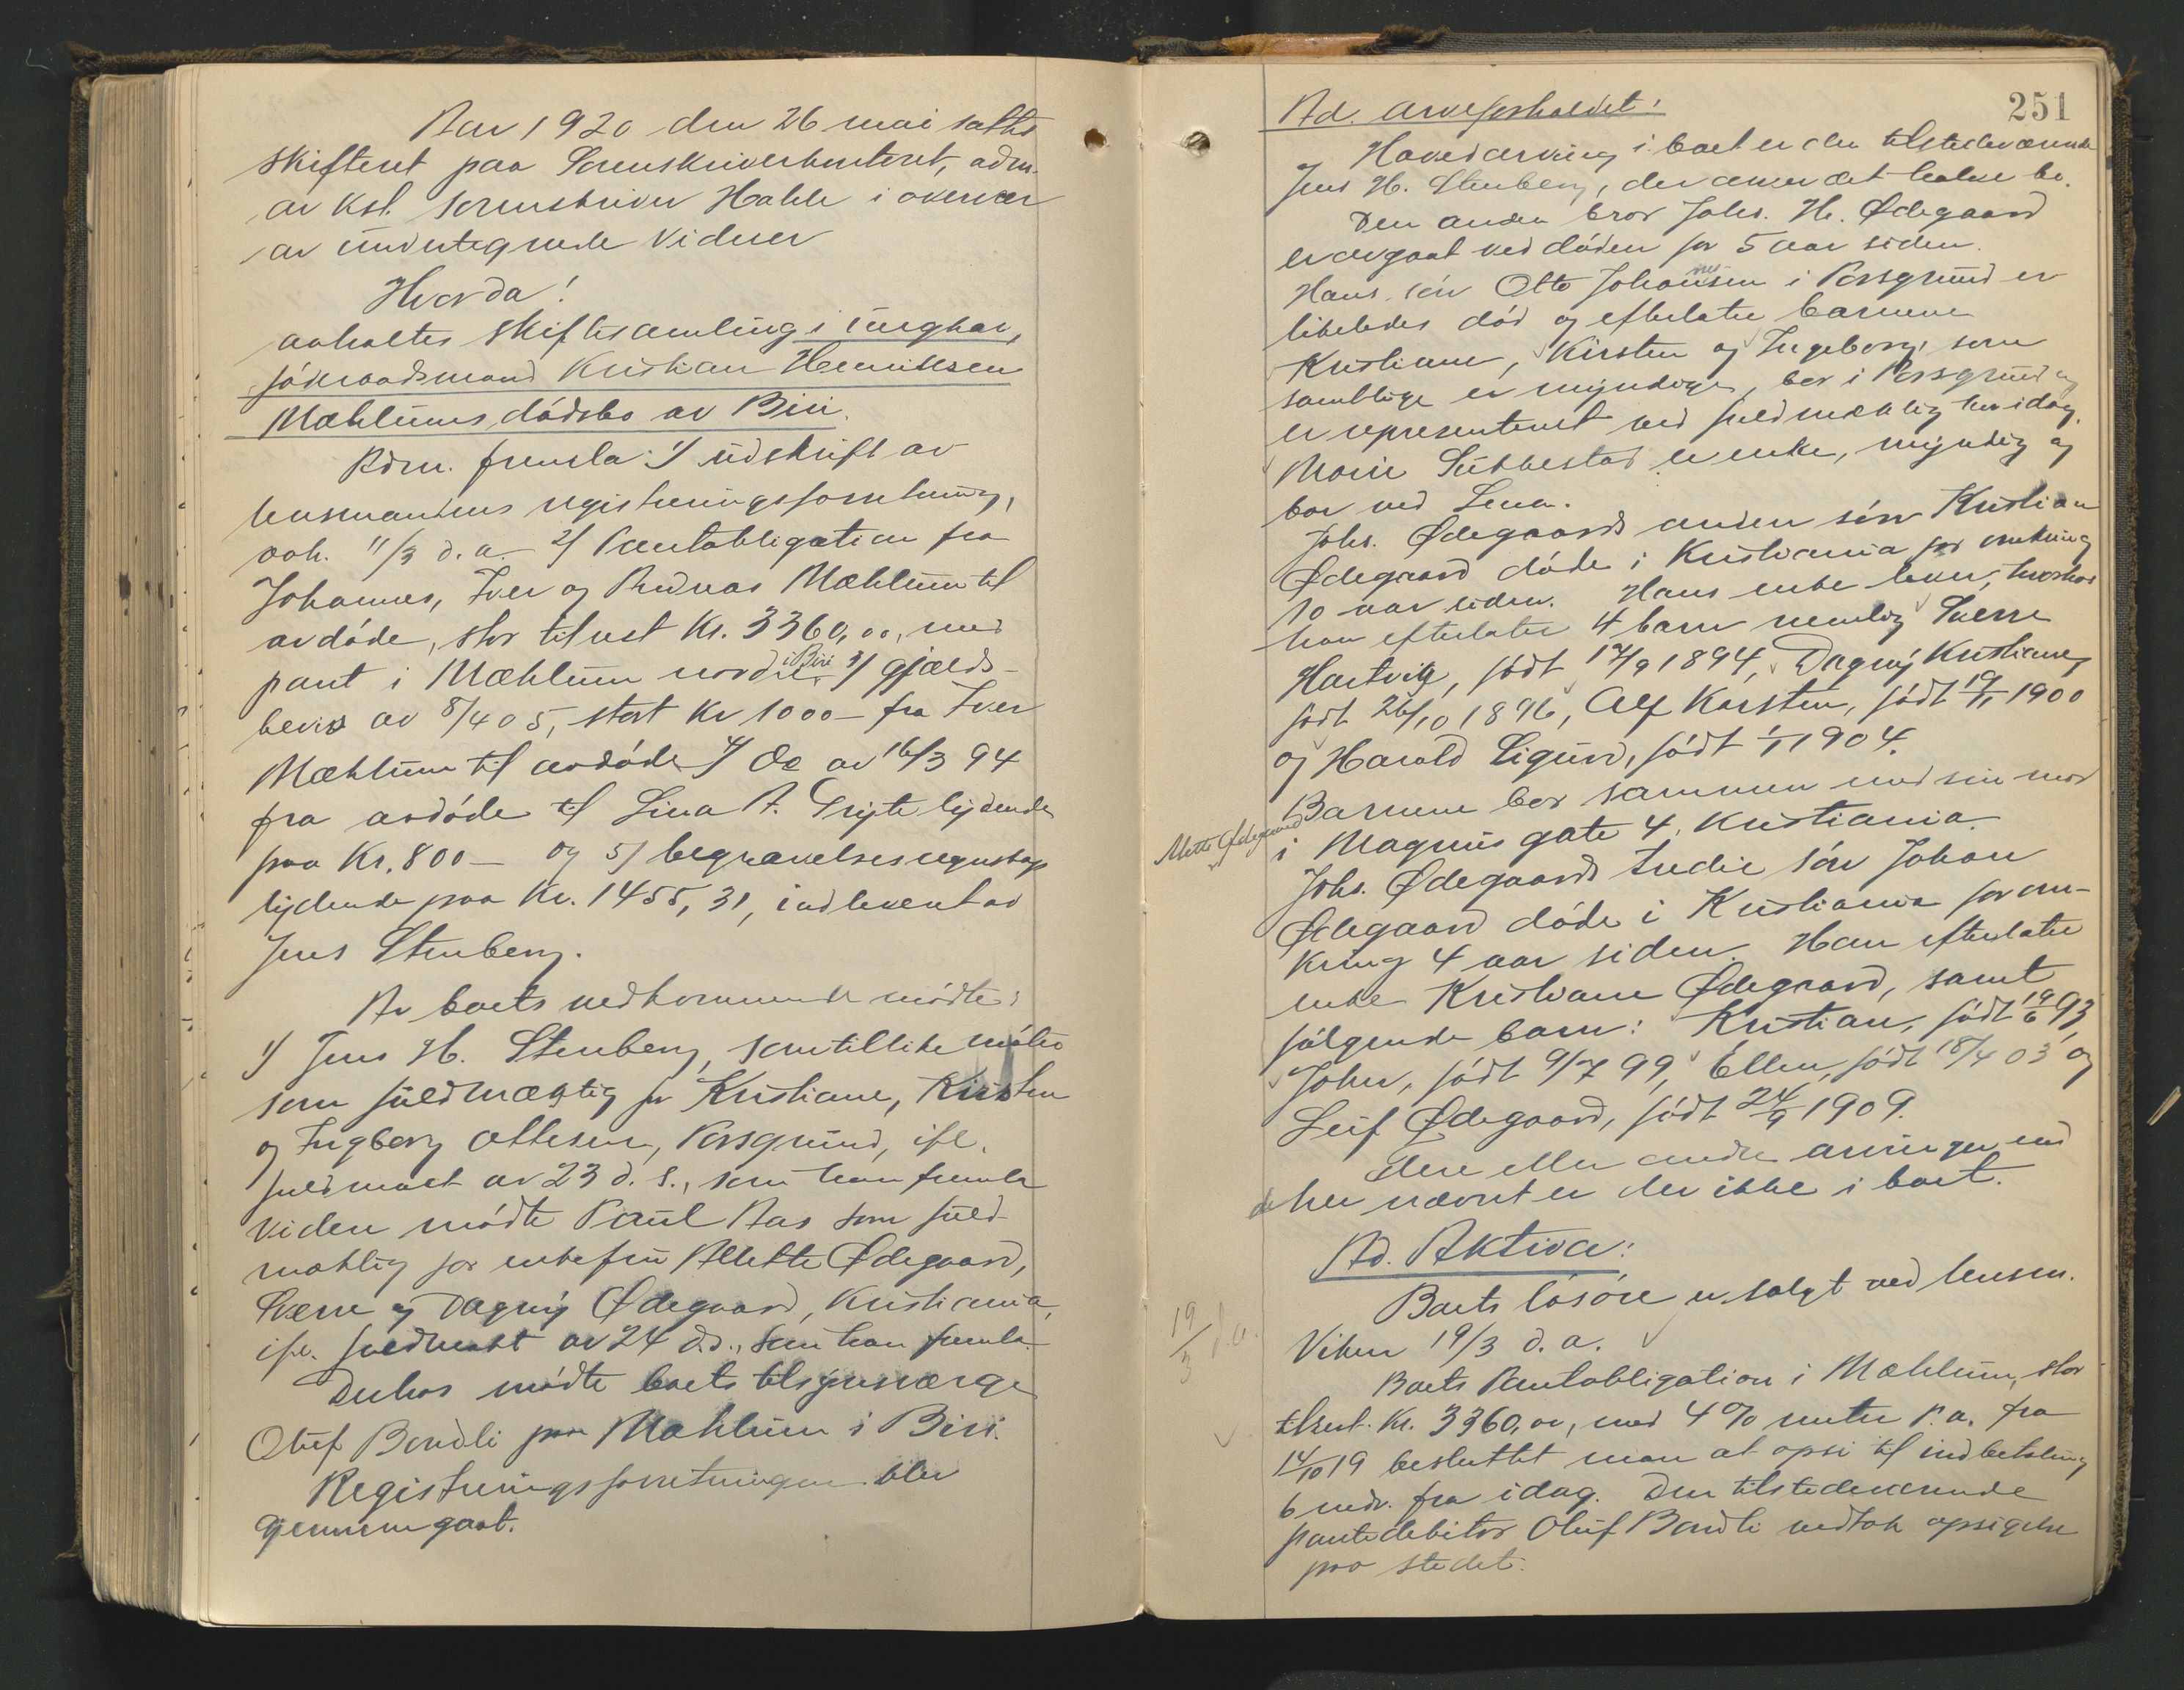 Aar 1920 den 26 mai sattes
skifteret paa Sorenskriverkontoret, adm.
av kst. sorenskriver Hahle i overvær
av undertegnede vidner
Hvorda!
avholtes skiftesamling i ungkar,
føderaadsmand Kristian Henriksen
Mæhlums dødsbo av Biri.
Adm. fremla: 1/ udskrift av
lensmandens registreringsforretning,
avh. 11/3 d.a. 2/ Pantobligation fra
Johannes, Iver og Andreas Mæhlum til
avdøde, stor til rest Kr. 3360,00, med
pant i Mæhlum nordre i Biri 3/ gjælds-
bevis av 8/4 05, stort Kr 1000 – fra Iver
Mæhlum til avdøde 4/ Do av 16/3 94
fra avdøde til Lina A. Gryte lydende
paa Kr. 800 – og 5/ begravelsesregnskap
lydende paa Kr. 1455,31, indlevert av
Jens Stenberg.
Av boets vedkommende mødte:
1/ Jens H. Stenberg, som tillike møter
som fuldmægtig for Kristiane, Kirsten
og Ingeborg Ottesen, Porsgrund, ifl.
fuldmakt av 23 d.s., som han fremla
Viden mødte Paul Aas som fuld-
mæktig for enkefru Alette Ødegaard,
Sverre og Dagny Ødegaard, Kristiania,
ifl. fuldmakt av 24 d.s., som han fremla.
Derhos mødte boets tilsynsværge
Oluf Bondli paa Mæhlum i Biri.
Registreringsforretningen blev
gjennemgaat.
251
Ad. arveforholdet:
Hovedarving i boet er den tilstedeværende
Jens H. Stenberg, der arver det halve bo.
Den anden bror Johs. H. Ødegaard
er avgaat ved døden for 5 aar siden.
Hans søn Otto Johannesen i Porsgrund er
likeledes død og efterlater barnene
Kristiane, Kirsten og Ingeborg, som
samtlige er myndige, bor i Porsgrund og
er representeret ved fuldmæktig her idag.
Marie Sukkestad er enke, myndig og
bor ved Lena.
Johs. Ødegaards anden søn Kristian
Ødegaard døde i Kristiania for omkring
10 aar siden. Hans enke lever, hvorhos
han efterlater 4 barn nemlig Sverre
Hartvig, født 17/9 1894, Dagny Kristiane,
født 26/10 1896, Alf Karsten, født 19/11 1900
og Harald Sigurd, født 1/1 1904.
Barnene bor sammen med sin mor
Alette Ødegaard
i Magnus gate 4, Kristiania.
Johs. Ødegaards tredie søn Johan
Ødegaard døde i Kristiania for om-
kring 4 aar siden. Han efterlater
enke Kristiane Ødegaard, samt
følgende barn: Kristian, født 19/6 93,
John, født 9/7 99, Ellen, født 18/4 03 og
Leif Ødegaard, født 24/9 1909.
Flere eller andre arvinger end
de her nævnt er der ikke i boet.
Ad. Aktiva:
Boets løsøre er solgt ved lensm.
Viken 19/3 d.a.
19/3 d.a.
Boets Pantobligation i Mæhlum, stor
til rest. Kr. 3360,00, med 4% renter p.a. fra
14/10 19 besluttet man at opsi til indbetaling
6 mdr. fra idag. Den tilstedeværende
pantedebitor Oluf Bondli vedtok opsigelse
paa stedet.